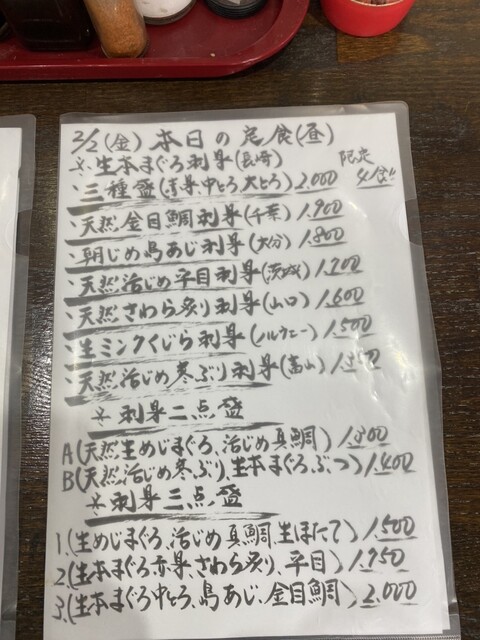 2/2(金) 本日の定食(昼)
※生本まぐろ刺身(長崎) 限定
・三種盛(赤身、中とろ、大とろ) 2.000 4食!!
・天然金目鯛刺身(千葉) 1.900
・朝じめ島あじ刺身(大分) 1.800
・天然活じめ平目刺身(茨城) 1.700
・天然さわら炙り刺身(山口) 1.600
・生ミンククじら刺身(ノルウェー) 1.500
・天然活じめ寒ぶり刺身(富山)
※刺身二点盛
A(天然生めじまぐろ、活じめ真鯛) 1.300
B(天然活じめ寒ぶり、生本まぐろぶつ) 1.400
※刺身三点盛
1.(生めじまぐろ、活じめ真鯛、生ほたて) 1.500
2.(生本まぐろ赤身、さわら炙り、平目) 1.750
3.(生本まぐろ中とろ、島あじ、金目鯛) 2.000